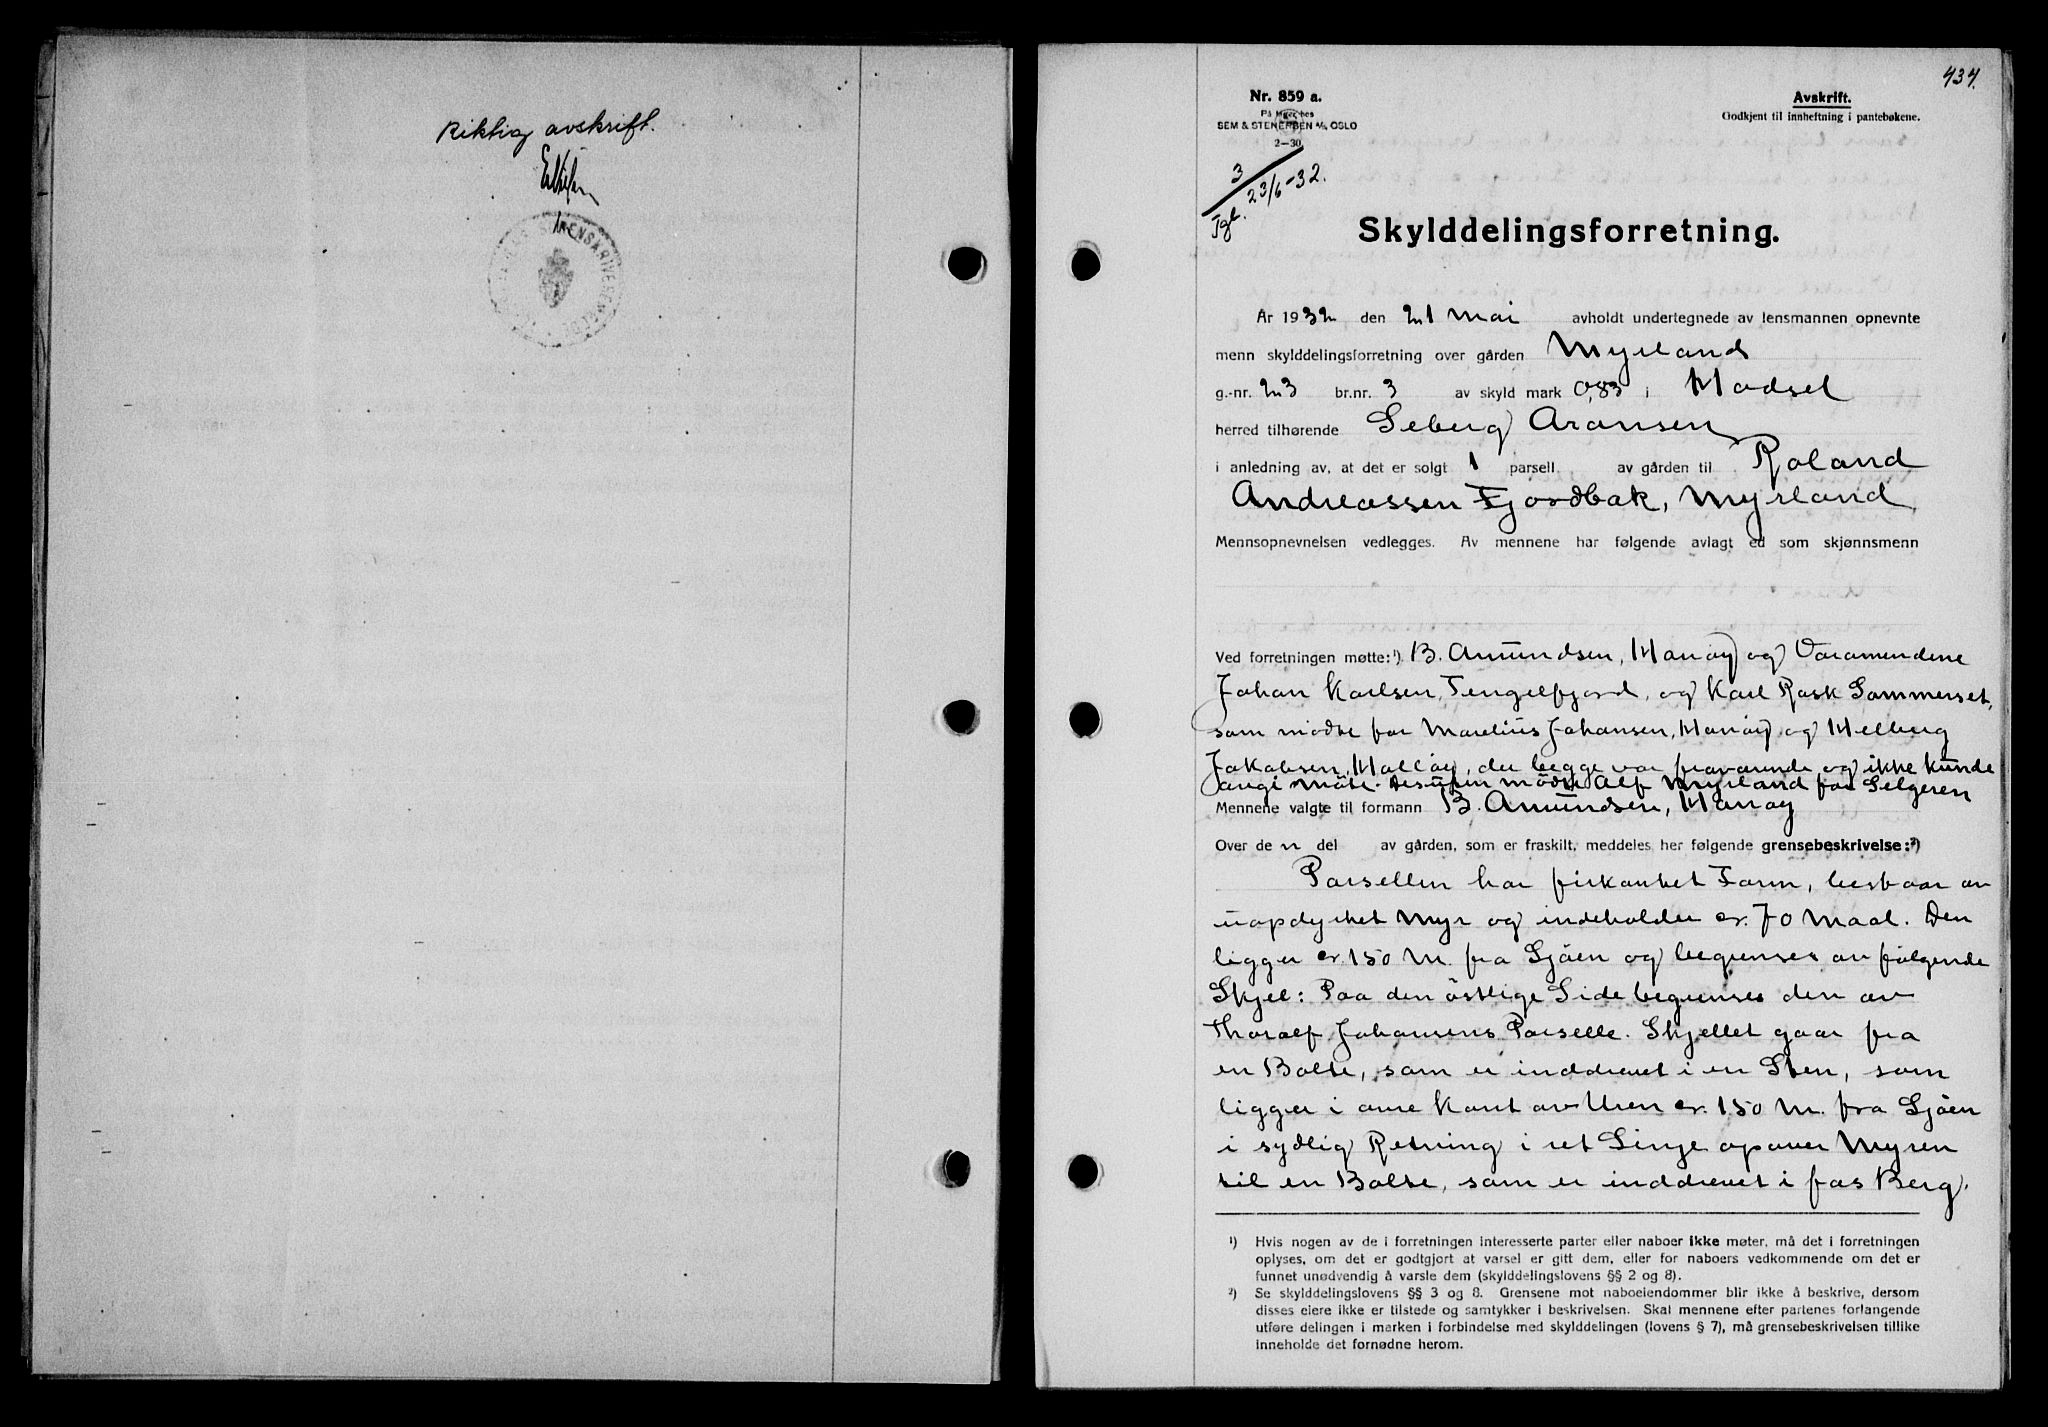 Riktig avskrift.
434.
Nr. 859 a.
På lager hos
SEM & STENERSEN A/S OSLO
2—30
Avskrift.
Godkjent til innheftning i pantebøkene.
3
Tgl. 23/6-32.
Skylddelingsforretning.
År 1932 den 21 Mai avholdt undertegnede av lensmannen opnevnte
menn skylddelingsforretning over gården Myrland
g.-nr. 23 br.nr. 3 av skyld mark 0,83 i Hadsel
herred tilhørende Seberg Aronsen
i anledning av, at det er solgt 1 parsell av gården til Roland
Andreassen Fjordbak, Myrland
Mennsopnevnelsen vedlegges. Av mennene har følgende avlagt ed som skjønnsmenn
Ved forretningen møtte:¹) B. Amundsen, Hanøy og Varamendene
Johan Karlsen, Tengelfjord, og Karl Rask Sommerset,
som mödte for Marelius Johansen, Hanöy og Helberg
Jakobsen, Hallöy, der begge var fraværende og ikke kunde
angi möte. Desuten mödte Alf Myrland for Selgeren
Mennene valgte til formann B. Amundsen, Hanøy
Over den del av gården, som er fraskilt, meddeles her følgende grensebeskrivelse:²)
Parsellen har firkantet Form, bestaar av
uopdyrket Myr og indeholder cr. 70 Maal. Den
ligger cr. 150 M. fra Sjöen og begrenses av følgende
Skjel: Paa den östlige Side begrenses den av
Thoralf Johansens Parselle. Skjellet gaar fra
en Bolte, som er inddrevet i en Sten, som
ligger i øvre Kant av Uren cr. 150 M. fra Sjöen
i sydlig Retning i ret Linje opover Myren
til en Bolte, som er inddrevet i fas Berg.
¹) Hvis nogen av de i forretningen interesserte parter eller naboer ikke møter, må det i forretningen
oplyses, om det er godtgjort at varsel er gitt dem, eller for naboers vedkommende om det er
funnet unødvendig å varsle dem (skylddelingslovens §§ 2 og 8).
²) Se skylddelingslovens §§ 3 og 8. Grensene mot naboeiendommer blir ikke å beskrive, dersom
disses eiere ikke er tilstede og samtykker i beskrivelsen. Skal mennene efter partenes forlangende
utføre delingen i marken i forbindelse med skylddelingen (lovens § 7), må grensebeskrivelsen tillike
inneholde det fornødne herom.